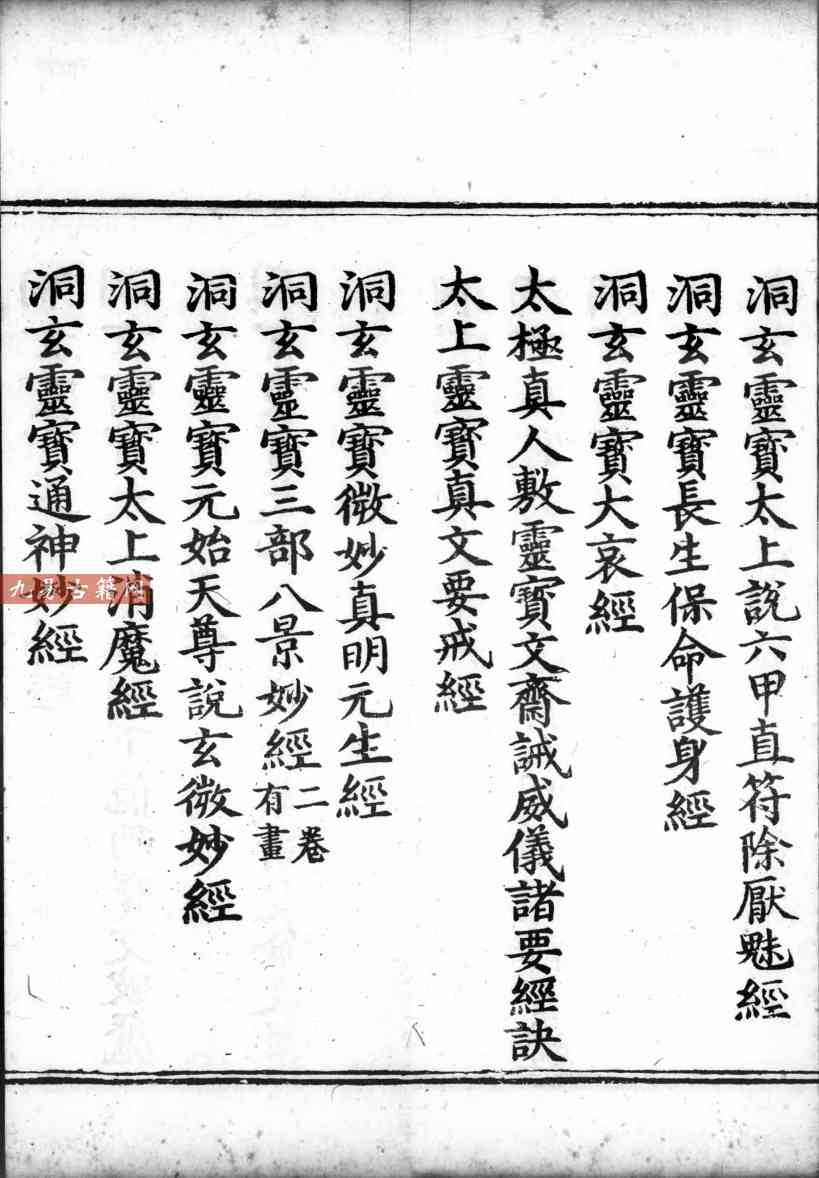 洞玄靈寶太上說六甲直符除厭魅經
洞玄靈寶長生保命護身經
洞玄靈寶大哀經
太極真人敷靈寶文齋誡威儀諸要經訣
太上靈寶真文要戒經
洞玄靈寶微妙真明元生經
洞玄靈寶三部八景妙經二卷有畫
洞玄靈寶元始天尊說玄微妙經
洞玄靈寶太上消魔經
洞玄靈寶通神妙經
九易古籍网